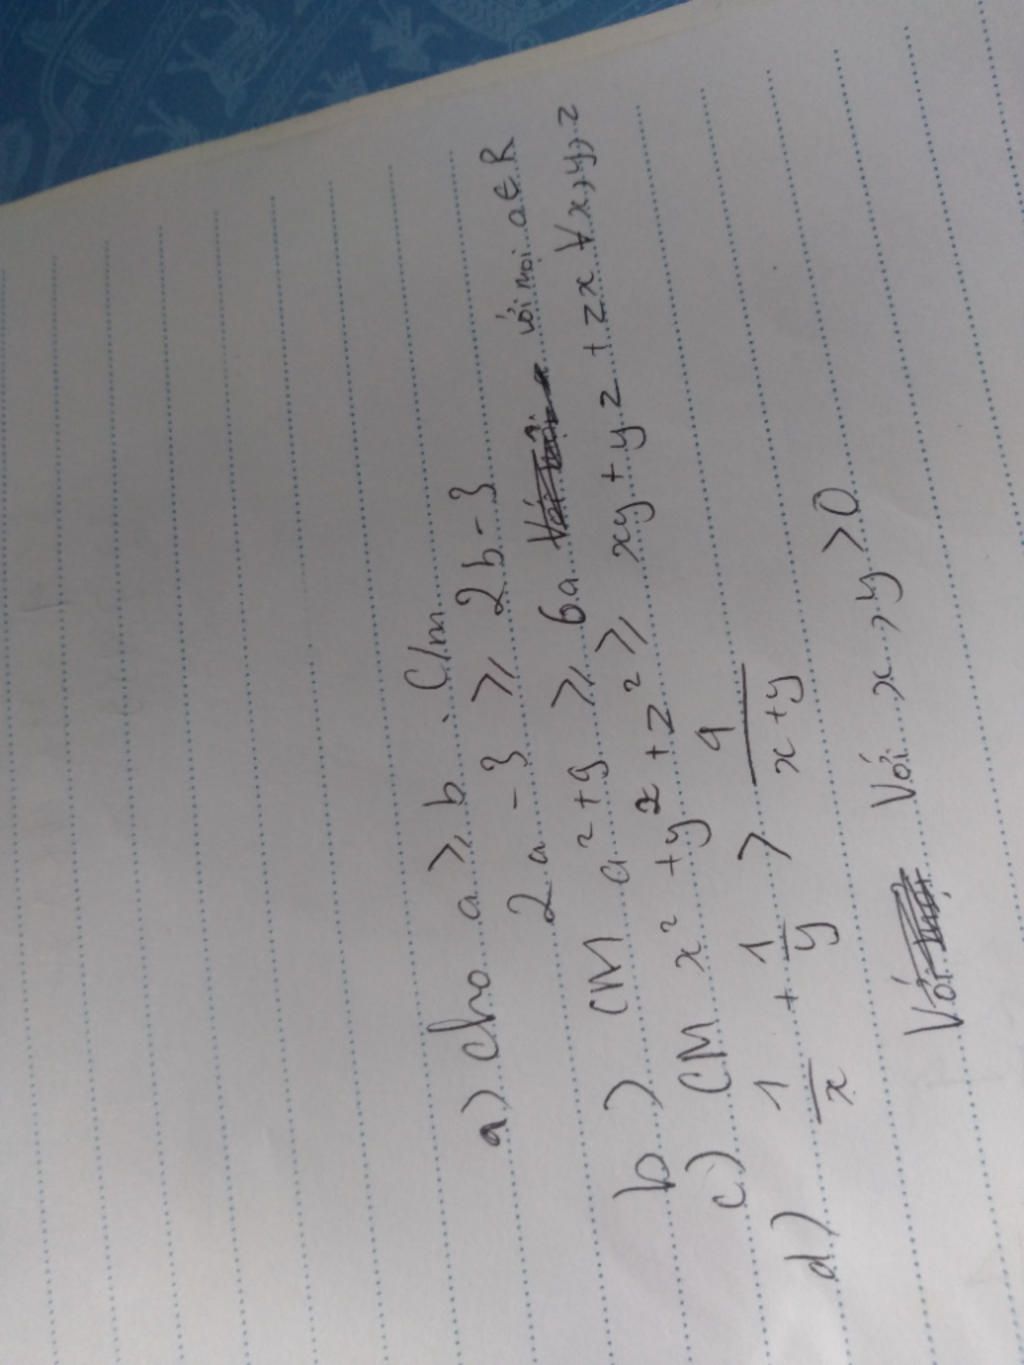 a) cho a ⩾ b. C/m
2a - 3 ⩾ 2b - 3
b) CM a² + 9 ⩾ 6a với mọi a ∈ R
c) CM x² + y² + z² ⩾ xy + yz + zx ∀ x, y, z
d) 1/x + 1/y > 4/x+y
Với x, y > 0